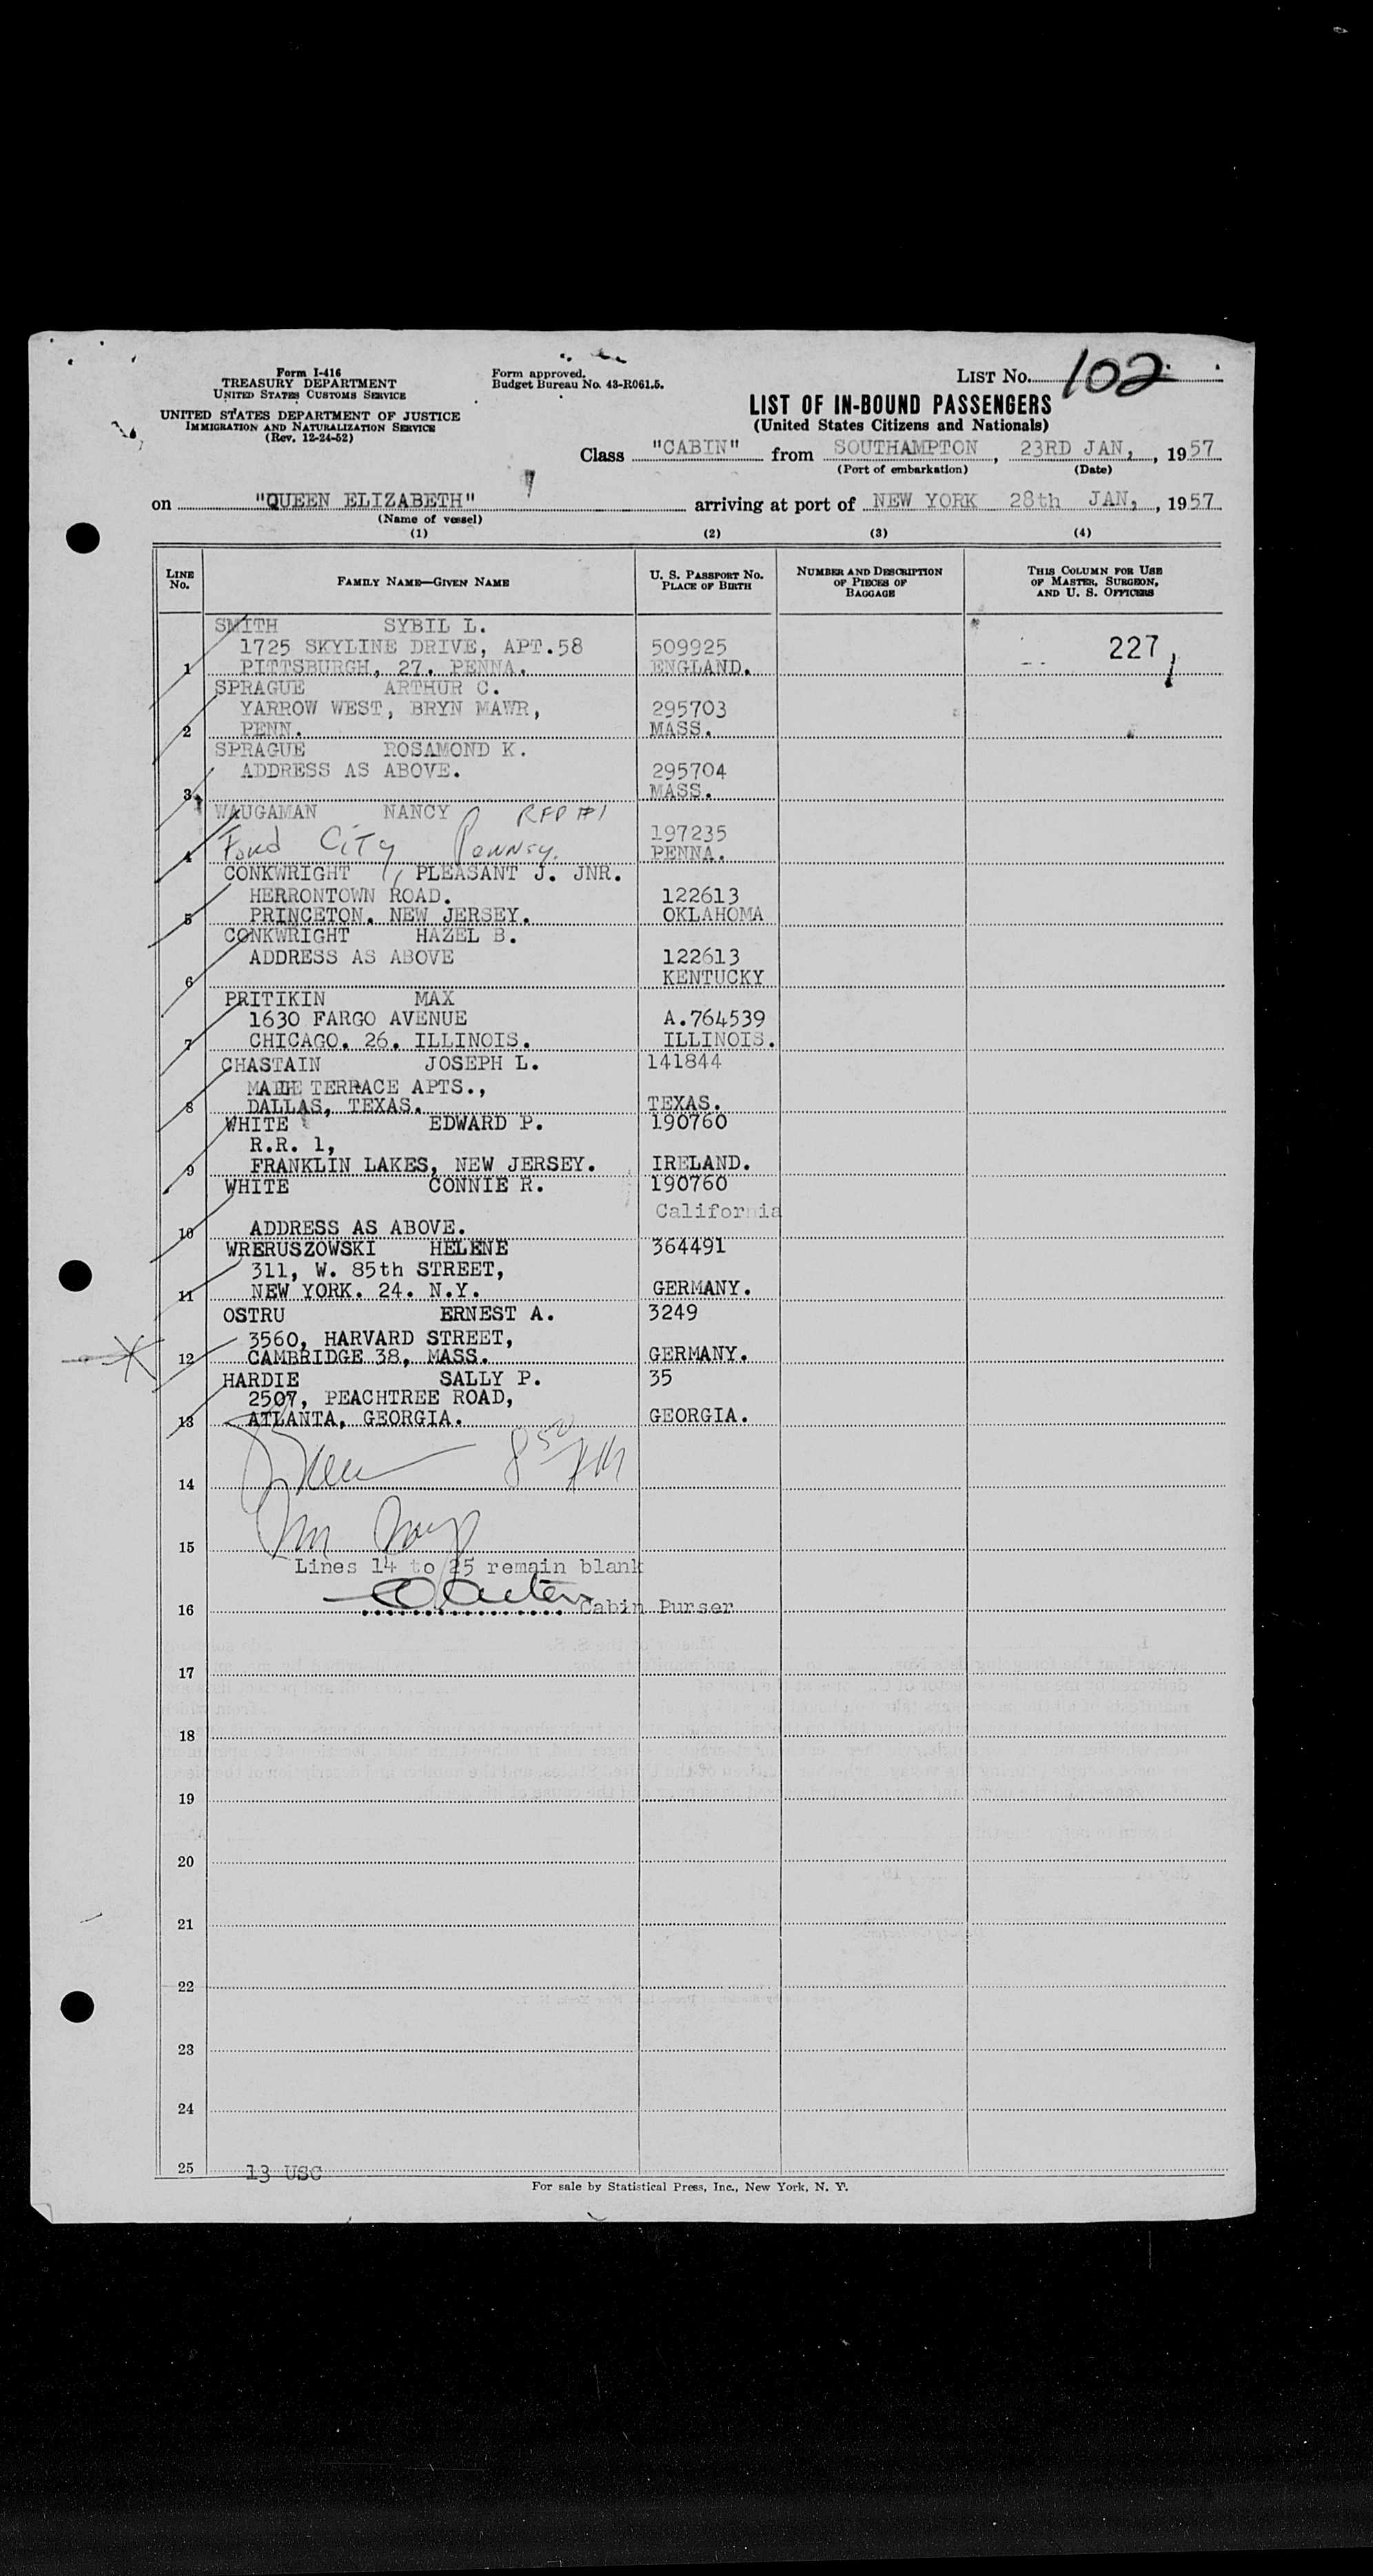 Form I-416
TREASURY DEPARTMENT
UNITED STATES CUSTOMS SERVICE
UNITED STATES DEPARTMENT OF JUSTICE
IMMIGRATION AND NATURALIZATION SERVICE
(Rev. 12-24-52)
Form approved.
Budget Bureau No. 43-R061.5.
LIST No. 102
LIST OF IN-BOUND PASSENGERS
(United States Citizens and Nationals)
Class "CABIN" from SOUTHAMPTON, 23RD JAN, , 1957
(Port of embarkation) (Date)
on "QUEEN ELIZABETH" arriving at port of NEW YORK 28th JAN, , 1957
(Name of vessel)
(1) (2) (3) (4)
LINE No. FAMILY NAME—GIVEN NAME U. S. PASSPORT No. PLACE OF BIRTH NUMBER AND DESCRIPTION OF PIECES OF BAGGAGE THIS COLUMN FOR USE OF MASTER, SURGEON, AND U. S. OFFICERS
SMITH SYBIL L.
1725 SKYLINE DRIVE, APT.58 509925 227
1 PITTSBURGH, 27. PENNA. ENGLAND.
SPRAGUE ARTHUR C.
YARROW WEST, BRYN MAWR, 295703
2 PENN. MASS.
SPRAGUE ROSAMOND K.
ADDRESS AS ABOVE. 295704
3 MASS.
WAUGAMAN NANCY RFD #1
197235
4 Ford City Pennsy. PENNA.
CONKWRIGHT PLEASANT J. JNR.
HERRONTOWN ROAD. 122613
5 PRINCETON. NEW JERSEY. OKLAHOMA
CONKWRIGHT HAZEL B.
ADDRESS AS ABOVE 122613
6 KENTUCKY
PRITIKIN MAX
1630 FARGO AVENUE A.764539
7 CHICAGO. 26. ILLINOIS. ILLINOIS.
CHASTAIN JOSEPH L. 141844
TERRACE APTS.,
8 DALLAS, TEXAS. TEXAS.
WHITE EDWARD P. 190760
R.R. 1,
9 FRANKLIN LAKES, NEW JERSEY. IRELAND.
WHITE CONNIE R. 190760
California
10 ADDRESS AS ABOVE.
WRERUSZOWSKI HELENE 364491
311, W. 85th STREET,
11 NEW YORK. 24. N.Y. GERMANY.
OSTRU ERNEST A. 3249
3560, HARVARD STREET,
12 CAMBRIDGE 38, MASS. GERMANY.
HARDIE SALLY P. 35
2507, PEACHTREE ROAD,
13 ATLANTA, GEORGIA. GEORGIA.
14
15
Lines 14 to 25 remain blank
16 Cabin Purser
17
18
19
20
21
22
23
24
25 13 USC
For sale by Statistical Press, Inc., New York, N. Y.